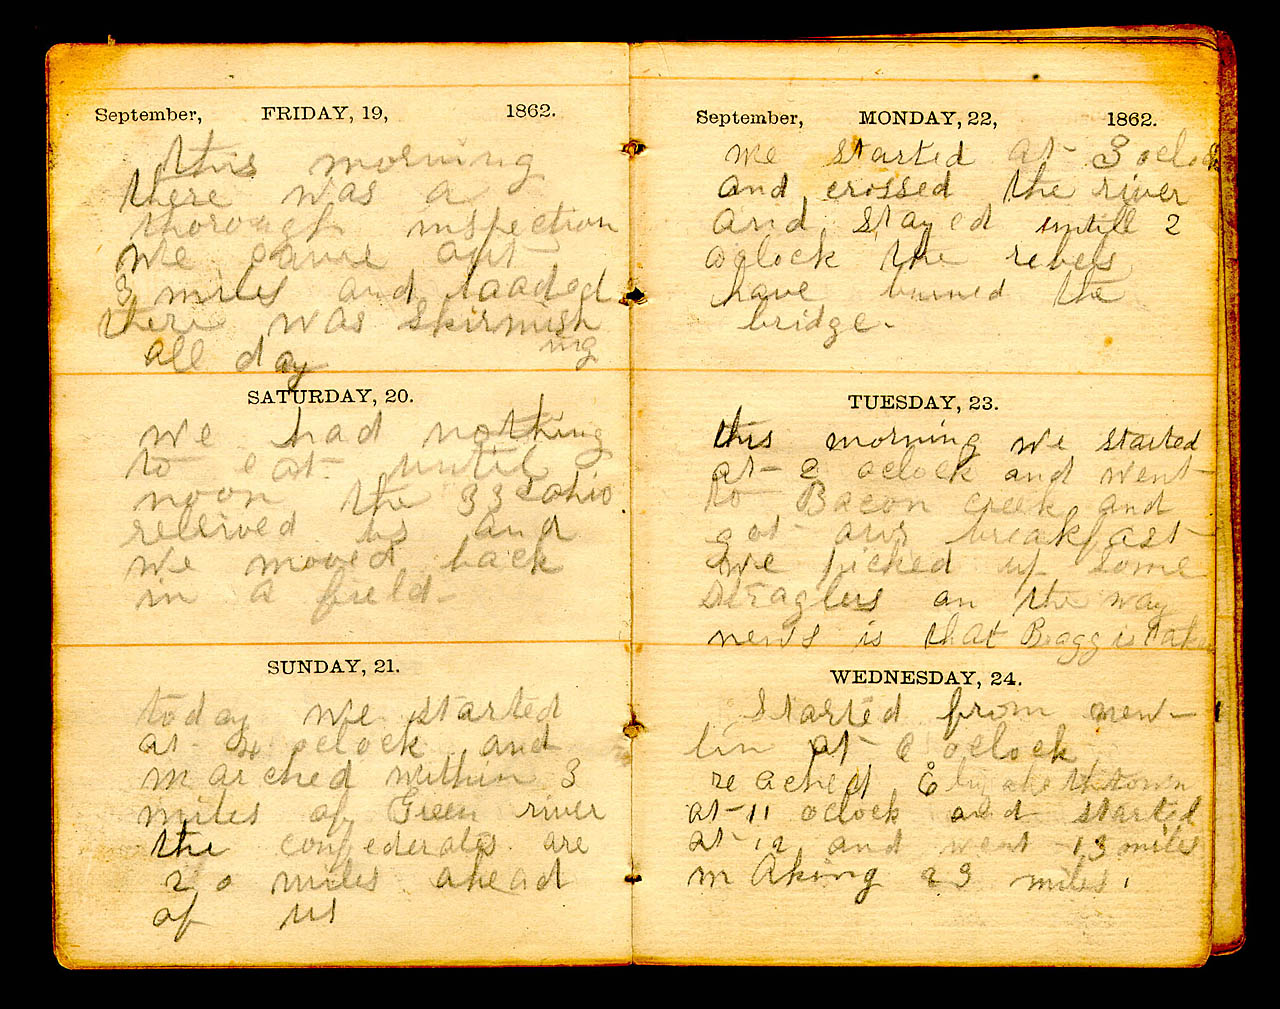 September, FRIDAY, 19, 1862.
this morning
there was a
thorough inspection
we came out
3 miles and loaded
there was skirmish
ing
all day
SATURDAY, 20.
we had nothing
to eat until
noon the 33 ohio
reliived us and
we moved back
in a field-
SUNDAY, 21.
today we started
at 4 oclock and
marched within 3
miles of Green river
the confederates are
20 miles ahead
of us
September, MONDAY, 22, 1862.
we started at 3 oclock
and crossed the river
and stayed untill 2
oclock the rebels
have burned the
bridge.
TUESDAY, 23.
this morning we started
at 2 oclock and went
to Bacon creek and
got our breakfast
we picked up some
straglers on the way
news is that Bragg is take
WEDNESDAY, 24.
Started from new-
lin at 6 oclock
reached Elizabethtown
at 11 oclock and started
at 12 and went 13 miles
making 23 miles.